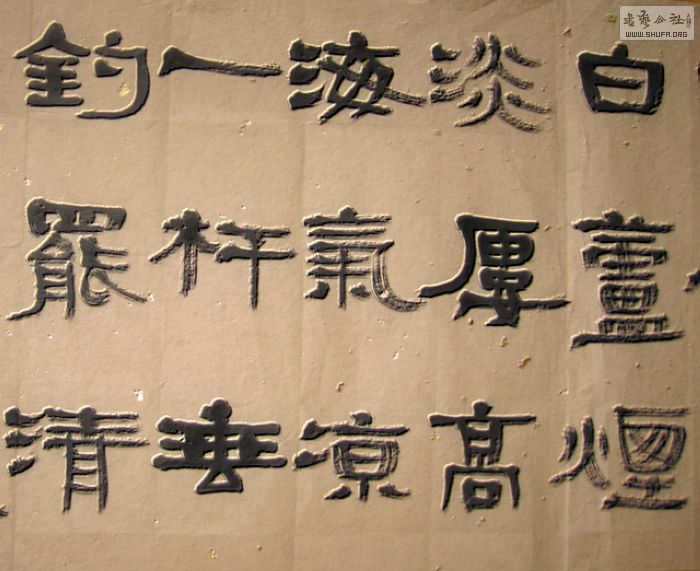 書藝公社
WWW.SHUFA.ORG
白蘆煙
淡屢高
海氣凉
一杆垂
釣罷清